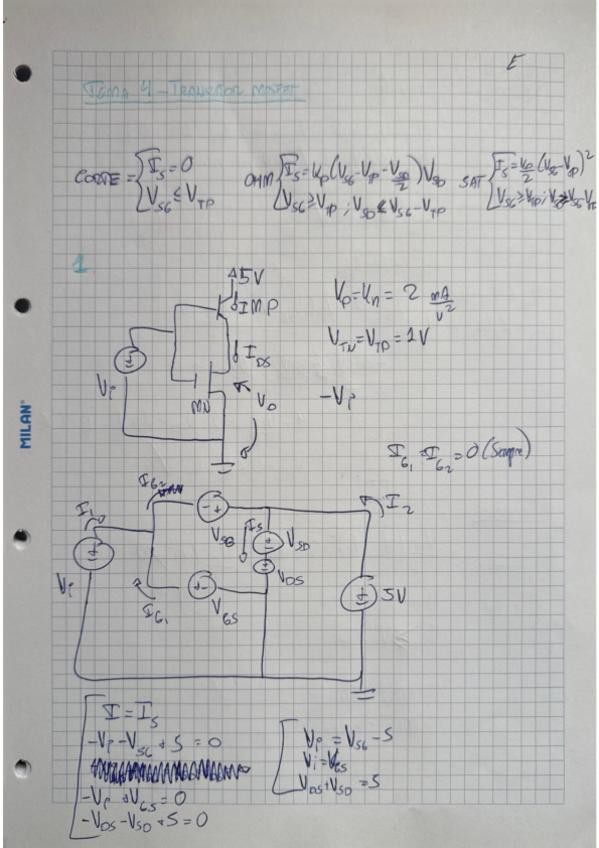 E
Tema 4 - Transistor MOSFET
CORTE = { I_S = 0
V_SG ≤ V_TP
OHM { I_S = K_P (V_SG - V_TP - V_SD/2) V_SD
V_SG ≥ V_TP ; V_SD ≤ V_SG - V_TP
SAT { I_S = K_P/2 (V_SG - V_TP)^2
V_SG ≥ V_TP ; V_SD ≥ V_SG - V_TP
1
5V
MP
I_DS
V_i
MN
V_O
K_P = K_n = 2 mA/V^2
V_TN = V_TP = 1V
-V_i
I_G1 = I_G2 = 0 (Siempre)
I_1
I_G2
V_SG
I_S
V_SD
V_DS
I_2
V_i
I_G1
V_GS
5V
I = I_S
-V_i - V_SG + 5 = 0
-V_i + V_GS = 0
-V_DS - V_SD + 5 = 0
V_i = V_SG - 5
V_i = V_GS
V_DS + V_SD = 5
MILAN